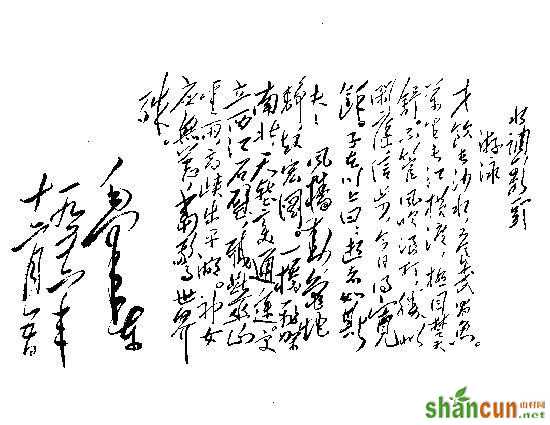 水调歌头
游泳
才饮长沙水，又食武昌鱼。
万里长江横渡，极目楚天
舒。不管风吹浪打，胜似
闲庭信步，今日得宽
馀。子在川上曰：逝者如斯
夫！风樯动，龟蛇
静，起宏图。一桥飞架
南北，天堑变通途。更
立西江石壁，截断巫山
云雨，高峡出平湖。神女
应无恙，当惊世界
殊。
毛泽东
一九五六年
十二月五日
shancun
山村网
.net